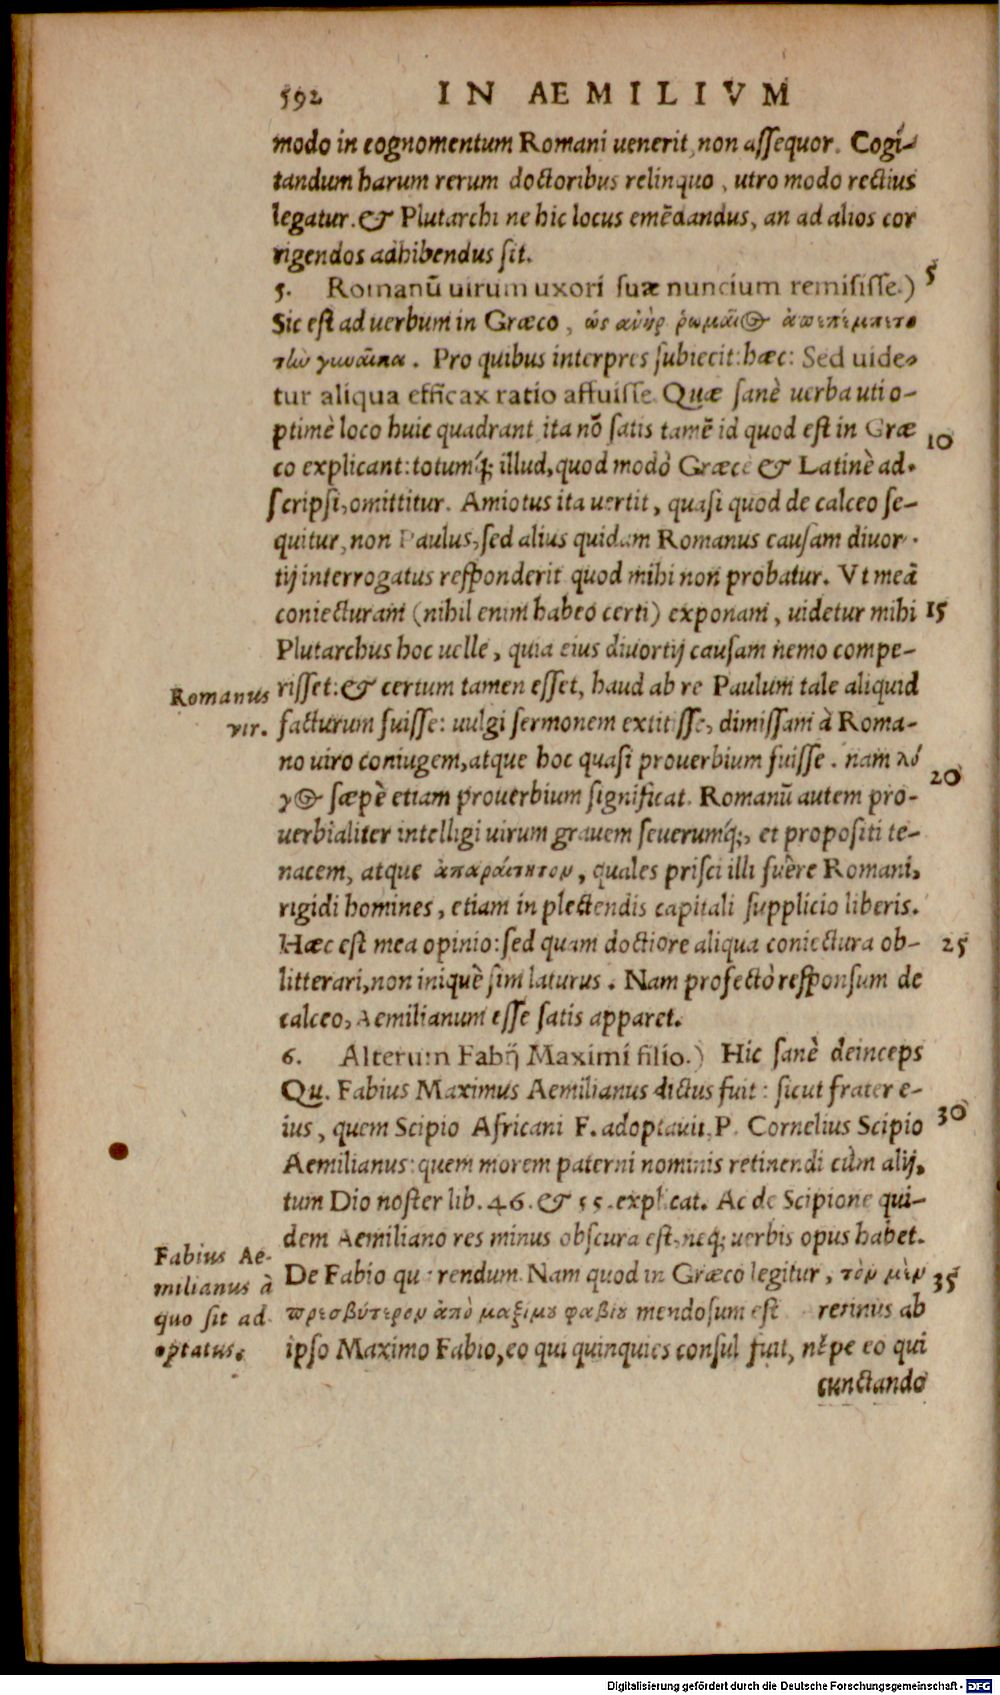 592 IN AEMILIVM
modo in cognomentum Romani uenerit, non assequor. Cogi-
tandum harum rerum doctoribus relinquo, utro modo rectius
legatur. & Plutarchi ne hic locus emēdandus, an ad alios cor
rigendos adhibendus sit.
5. Romanū uirum uxori suæ nuncium remisisse.) 5
Sic est ad uerbum in Græco, ὡς ἀνὴρ ῥωμαῖος ἀπεπέμπετο
τὴν γυναῖκα. Pro quibus interpres subiecit: hæc: Sed uide-
tur aliqua efficax ratio affuisse. Quæ sanè uerba uti o-
ptimè loco huic quadrant, ita nō satis tamē id quod est in Græ 10
co explicant: totumq́; illud, quod modò Græce & Latinè ad-
scripsi, omittitur. Amiotus ita uertit, quasi quod de calceo se-
quitur, non Paulus, sed alius quidam Romanus causam diuor-
tij interrogatus responderit quod mihi non probatur. Vt meā
coniecturam (nihil enim habeo certi) exponam, uidetur mihi 15
Plutarchus hoc uelle, quia eius diuortij causam nemo compe-
Romanus risset: & certum tamen esset, haud ab re Paulum tale aliquid
vir. facturum fuisse: uulgi sermonem extitisse, dimissam à Roma-
no uiro coniugem, atque hoc quasi prouerbium fuisse. nam λό
γος sæpè etiam prouerbium significat. Romanū autem pro- 20
uerbialiter intelligi uirum grauem seuerumq́;, et propositi te-
nacem, atque ἀπαραίτητον, quales prisci illi fuêre Romani,
rigidi homines, etiam in plectendis capitali supplicio liberis.
Hæc est mea opinio: sed quam doctiore aliqua coniectura ob- 25
litterari, non iniquè sim laturus. Nam profectò responsum de
calceo, Aemilianum esse satis apparet.
6. Alterum Fabij Maximi filio.) Hic sanè deinceps
Qu. Fabius Maximus Aemilianus dictus fuit: sicut frater e-
ius, quem Scipio Africani F. adoptauit, P. Cornelius Scipio 30
Aemilianus: quem morem paterni nominis retinendi cùm alij,
tum Dio noster lib. 46. & 55. explicat. Ac de Scipione qui-
dem Aemiliano res minus obscura est, neq; uerbis opus habet.
Fabius Ae-
milianus à
quo sit ad-
optatus.
De Fabio quærendum. Nam quod in Græco legitur, τὸν μὲν 35
πρεσβύτερον ἀπὸ μαξίμου φαβίου mendosum est ab
ipso Maximo Fabio, eo qui quinquies consul fuit, nēpe eo qui
cunctando
Digitalisierung gefördert durch die Deutsche Forschungsgemeinschaft - DFG